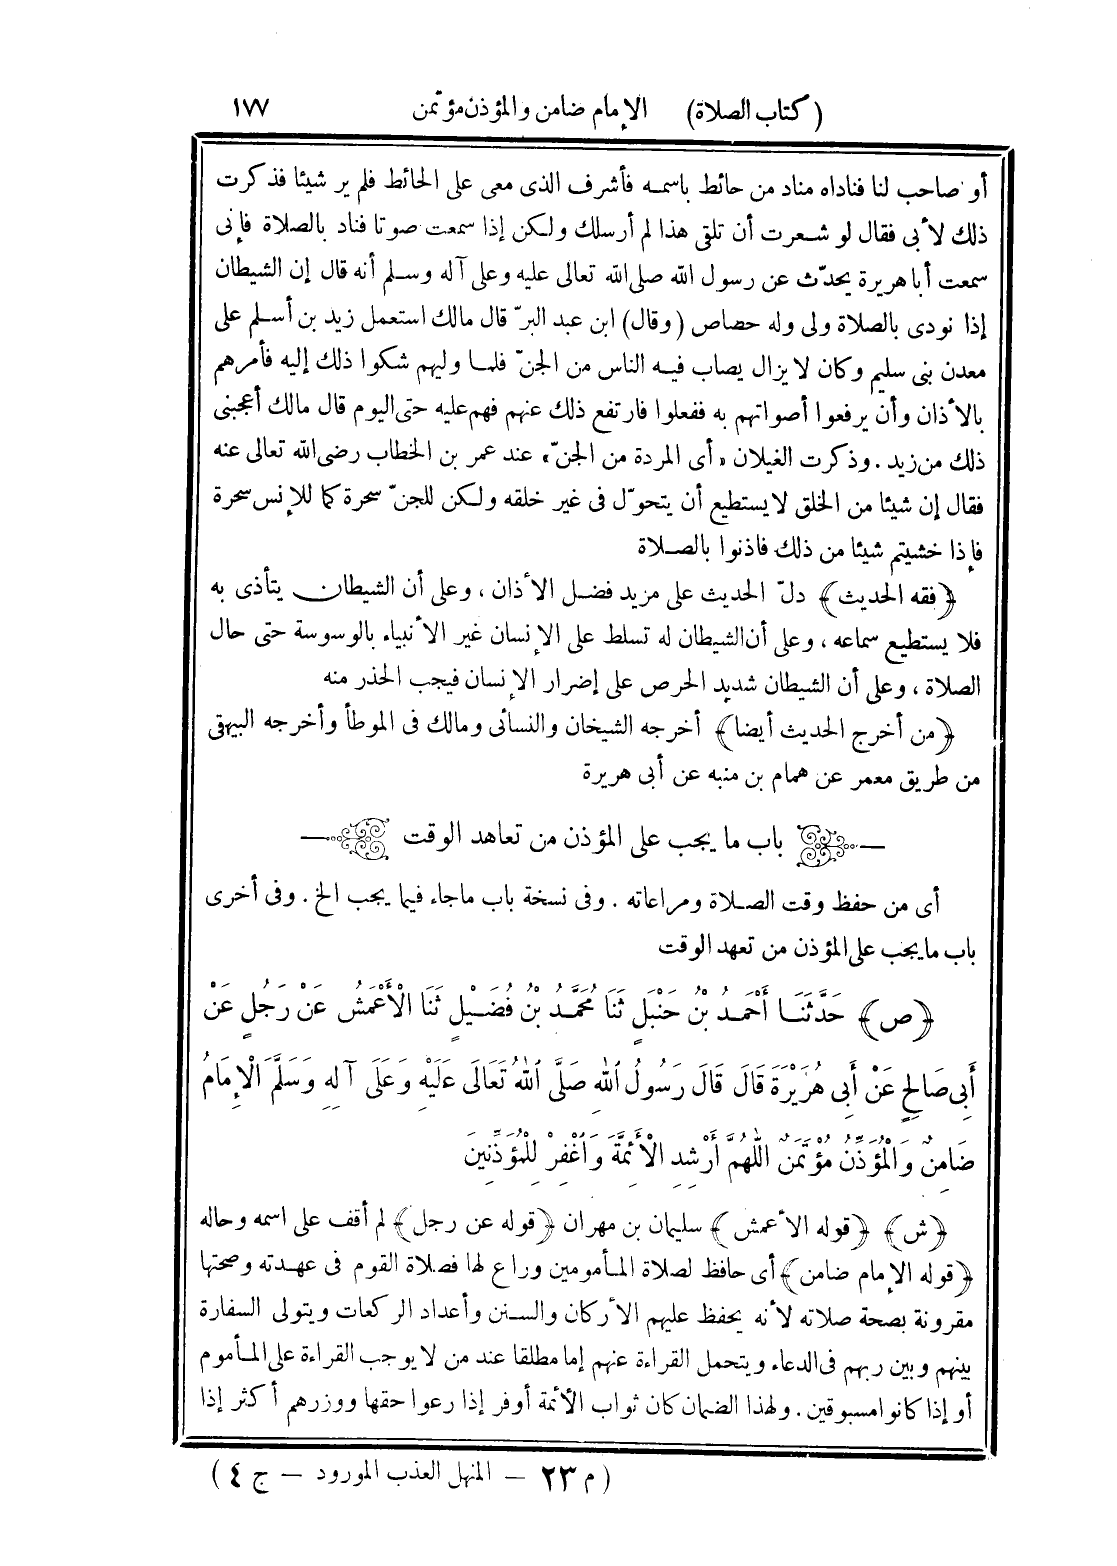 (كتاب الصلاة) الإمام ضامن والمؤذن مؤتمن ١٧٧
أو صاحب لنا فناداه مناد من حائط باسمه فأشرف الذى معى على الحائط فلم ير شيئا فذكرت
ذلك لأبى فقال لو شعرت أن تلقى هذا لم أرسلك ولكن إذا سمعت صوتا فناد بالصلاة فإنى
سمعت أبا هريرة يحدّث عن رسول الله صلى الله تعالى عليه وعلى آله وسلم أنه قال إن الشيطان
إذا نودى بالصلاة ولى وله حصاص (وقال) ابن عبد البرّ قال مالك استعمل زيد بن أسلم على
معدن بنى سليم وكان لا يزال يصاب فيه الناس من الجنّ فلما وليهم شكوا ذلك إليه فأمرهم
بالأذان وأن يرفعوا أصواتهم به ففعلوا فارتفع ذلك عنهم فهم عليه حتى اليوم قال مالك أعجبنى
ذلك من زيد . وذكرت الغيلان «أى المردة من الجنّ» عند عمر بن الخطاب رضى الله تعالى عنه
فقال إن شيئا من الخلق لا يستطيع أن يتحوّل فى غير خلقه ولكن للجنّ سحرة كما للإنس سحرة
فإذا خشيتم شيئا من ذلك فاذنوا بالصلاة
﴿فقه الحديث﴾ دلّ الحديث على مزيد فضل الأذان ، وعلى أن الشيطان يتأذى به
فلا يستطيع سماعه ، وعلى أن الشيطان له تسلط على الإنسان غير الأنبياء بالوسوسة حتى حال
الصلاة ، وعلى أن الشيطان شديد الحرص على إضرار الإنسان فيجب الحذر منه
﴿من أخرج الحديث أيضا﴾ أخرجه الشيخان والنسائى ومالك فى الموطأ وأخرجه البيهقى
من طريق معمر عن همام بن منبه عن أبى هريرة
باب ما يجب على المؤذن من تعاهد الوقت
أى من حفظ وقت الصلاة ومراعاته . وفى نسخة باب ماجاء فيما يجب الخ . وفى أخرى
باب ما يجب على المؤذن من تعهد الوقت
﴿ص﴾ حَدَّثَنَا أَحْمَدُ بْنُ حَنْبَلٍ ثَنَا مُحَمَّدُ بْنُ فُضَيْلٍ ثَنَا الْأَعْمَشُ عَنْ رَجُلٍ عَنْ
أَبِى صَالِحٍ عَنْ أَبِى هُرَيْرَةَ قَالَ قَالَ رَسُولُ اللهِ صَلَّى اللهُ تَعَالَى عَلَيْهِ وَعَلَى آلِهِ وَسَلَّمَ الْإِمَامُ
ضَامِنٌ وَالْمُؤَذِّنُ مُؤْتَمَنٌ اللَّهُمَّ أَرْشِدِ الْأَئِمَّةَ وَاغْفِرْ لِلْمُؤَذِّنِينَ
﴿ش﴾ ﴿قوله الأعمش﴾ سليمان بن مهران ﴿قوله عن رجل﴾ لم أقف على اسمه وحاله
﴿قوله الإمام ضامن﴾ أى حافظ لصلاة المأمومين وراع لها فصلاة القوم فى عهدته وصحتها
مقرونة بصحة صلاته لأنه يحفظ عليهم الأركان والسنن وأعداد الركعات ويتولى السفارة
بينهم وبين ربهم فى الدعاء ويتحمل القراءة عنهم إما مطلقا عند من لا يوجب القراءة على المأموم
أو إذا كانوا مسبوقين . ولهذا الضمان كان ثواب الأئمة أوفر إذا رعوا حقها ووزرهم أكثر إذا
(م ٢٣ – المنهل العذب المورود – ج ٤)